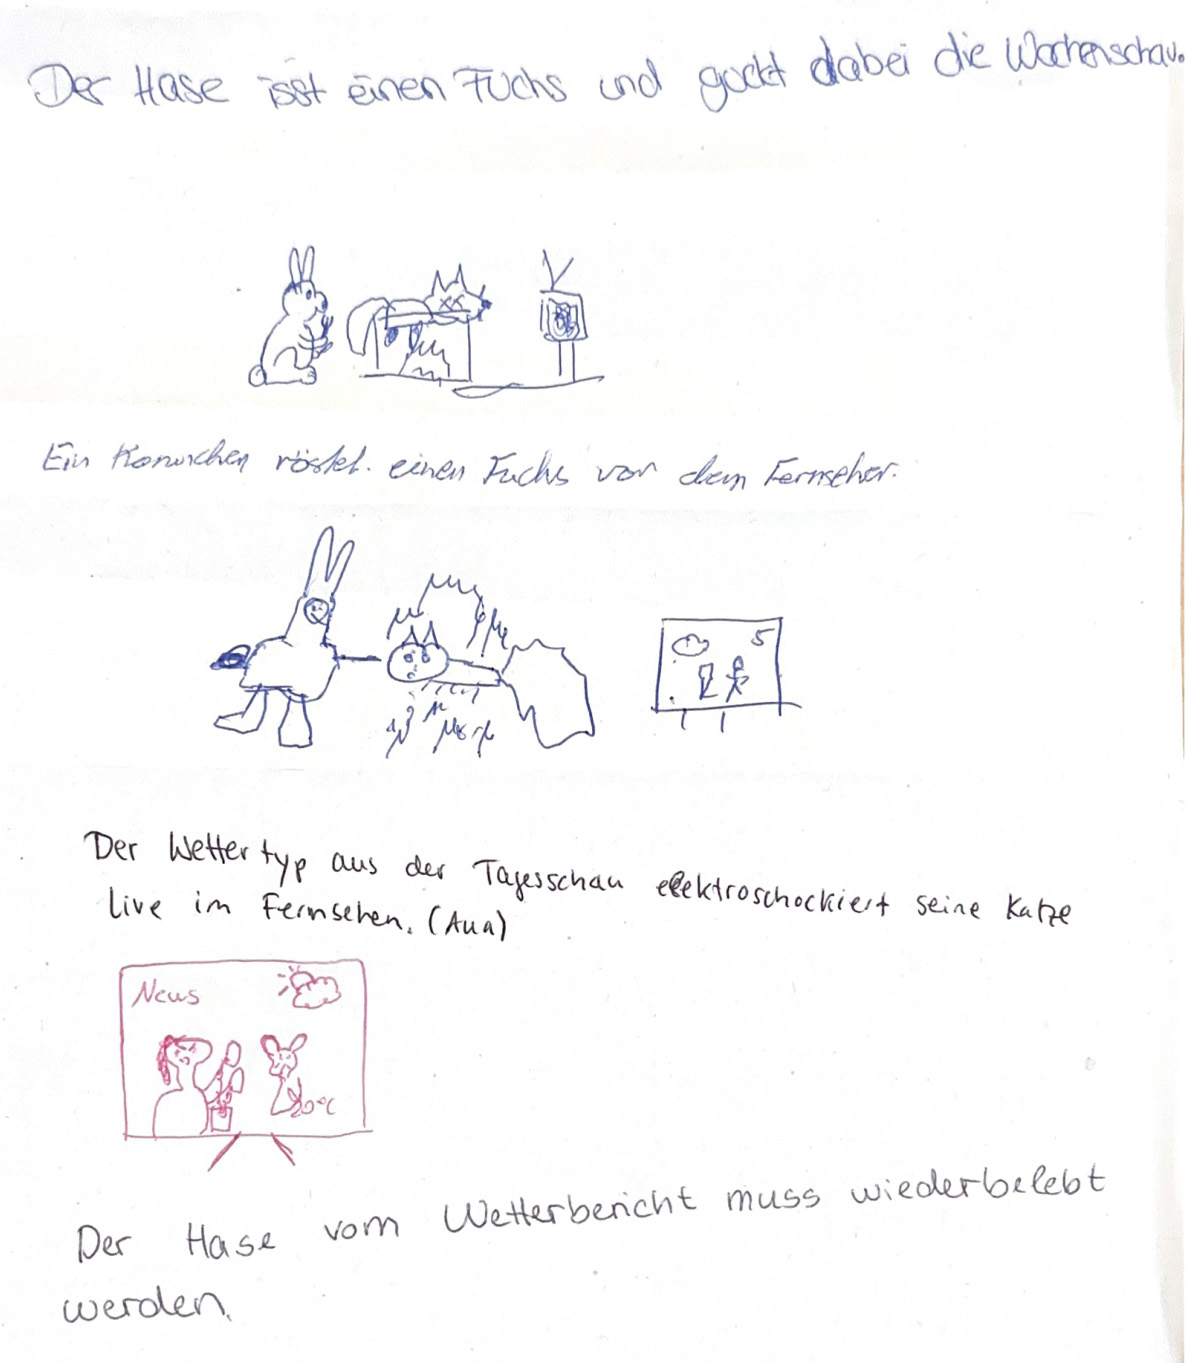 Der Hase isst einen Fuchs und guckt dabei die Wochenschau.
Ein Kaninchen röstet einen Fuchs vor dem Fernseher.
5
Der Wettertyp aus der Tagesschau elektroschockiert seine Katze
Live im Fernsehen. (Aua)
News
20°C
Der Hase vom Wetterbericht muss wiederbelebt
werden.